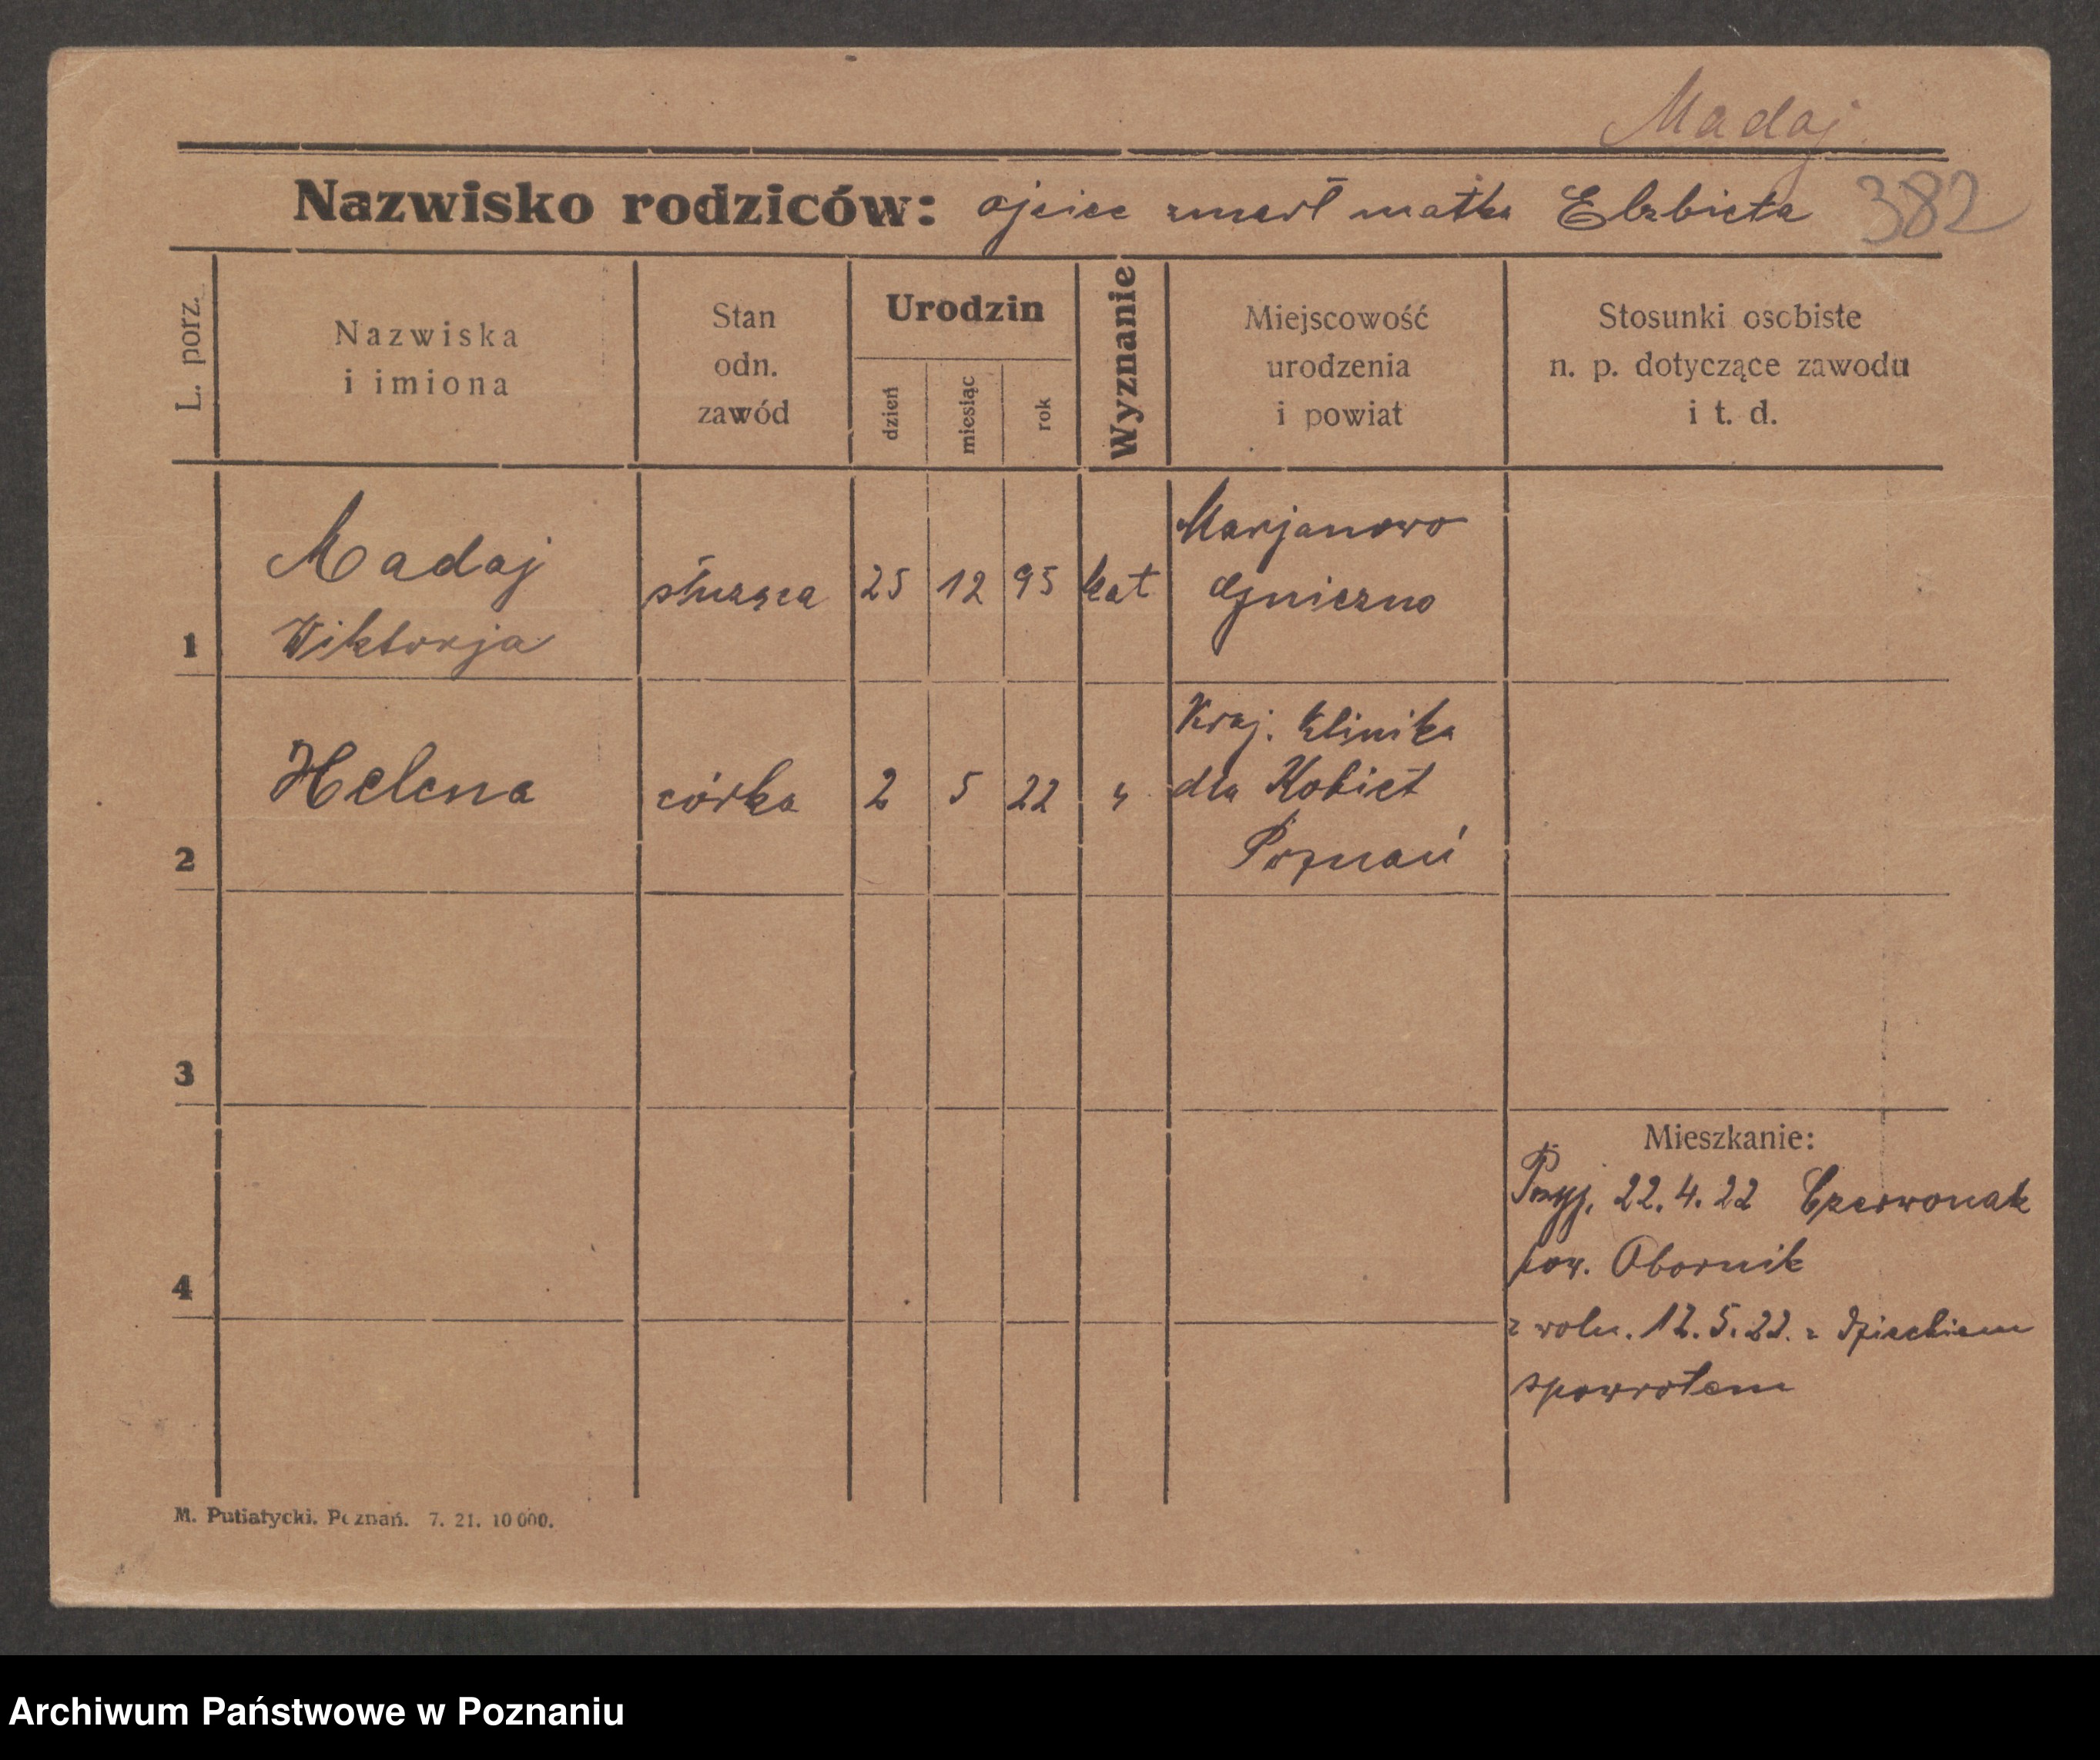 Madaj
Nazwisko rodziców: ojciec zmarł matka Elzbieta 382
L. porz.
Nazwiska
i imiona
Stan
odn.
zawód
Urodzin
dzień
miesiąc
rok
Wyznanie
Miejscowość
urodzenia
i powiat
Stosunki osobiste
n. p. dotyczące zawodu
i t. d.
1
Madaj
Wiktorja
służąca
25 12 95 kat
Marjanowo
Gniezno
2
Helena
córka
2 5 22 "
Kraj. Klinika
dla Kobiet
Poznań
3
4
Mieszkanie:
Przyj. 22.4.22 Czerwonak
pow. Obornik
zwoln. 12.5.22. z dzieckiem
spowrotem
M. Putiatycki. Poznań. 7. 21. 10 000.
Archiwum Państwowe w Poznaniu